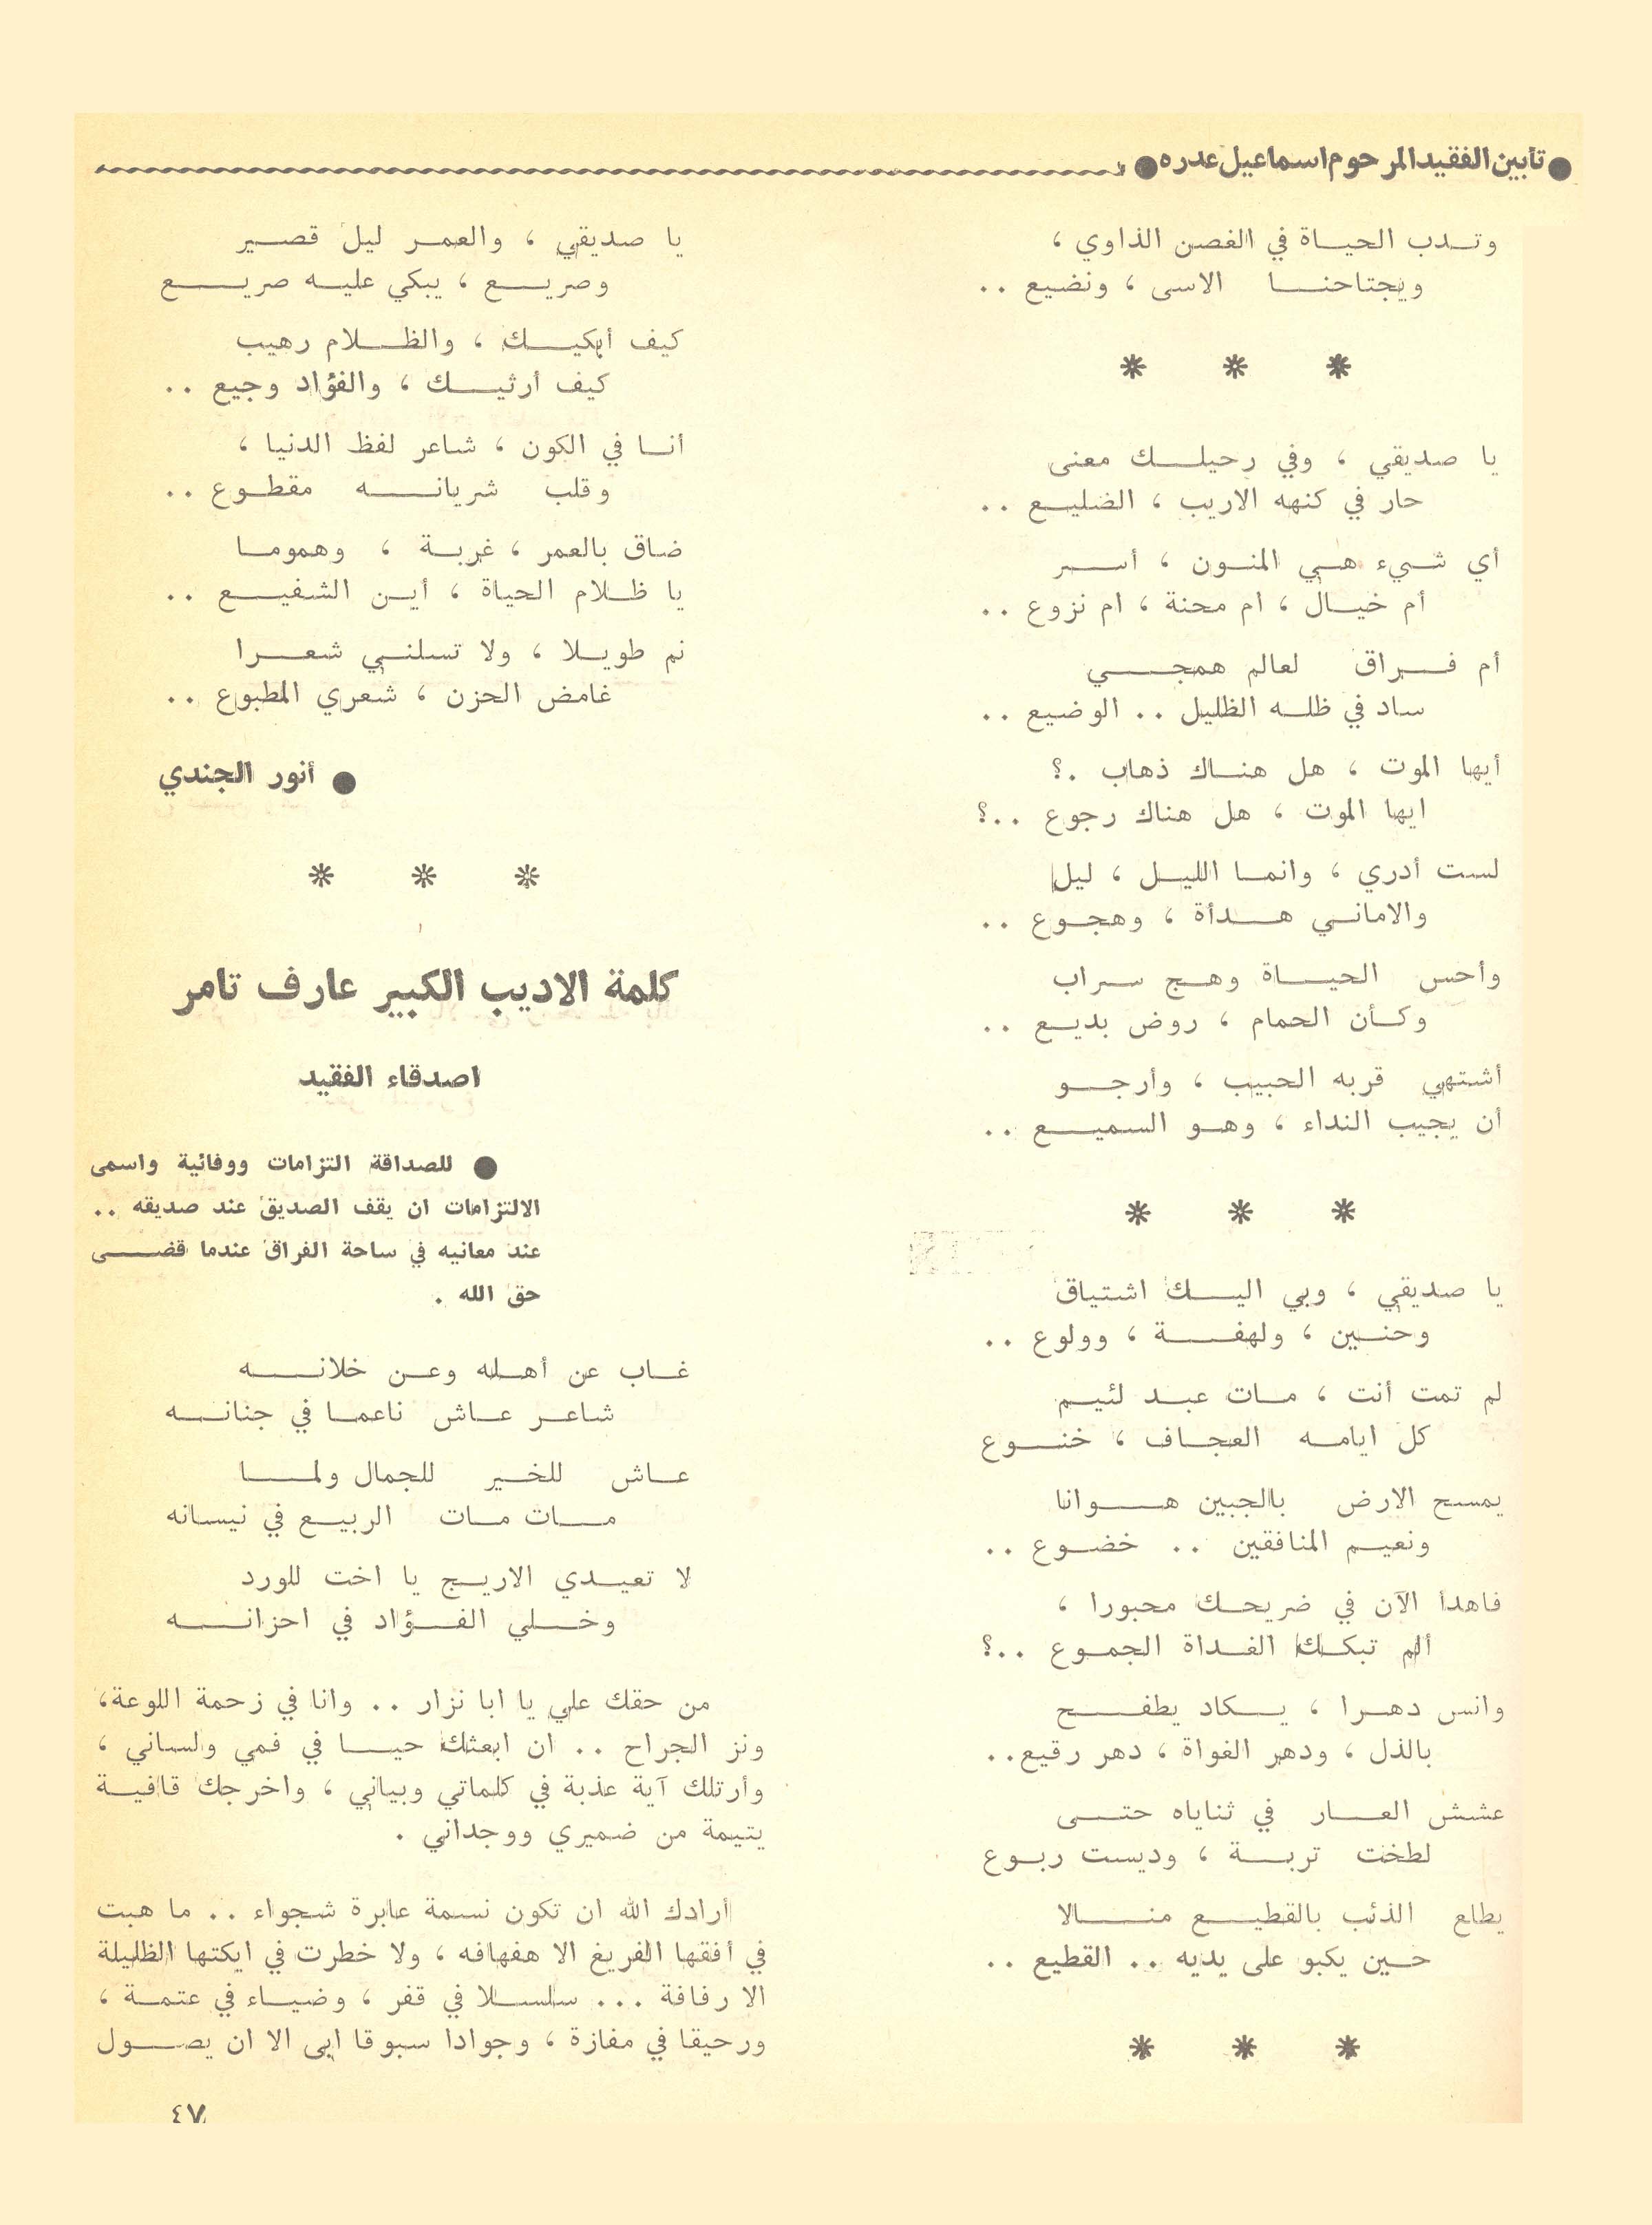 ● تأبين الفقيد المرحوم اسماعيل عدره ●
وتدب الحياة في الغصن الذاوي ،
ويجتاحنا الاسى ، ونضيع ..
* * *
يا صديقي ، وفي رحيلك معنى
حار في كنهه الاريب ، الضليع ..
أي شيء هي المنون ، أسر
أم خيال ، ام محنة ، ام نزوع ..
أم فراق لعالم همجي
ساد في ظله الظليل .. الوضيع ..
أيها الموت ، هل هناك ذهاب .؟
ايها الموت ، هل هناك رجوع ..؟
لست أدري ، وانما الليل ، ليل
والاماني هدأة ، وهجوع ..
وأحس الحياة وهج سراب
وكأن الحمام ، روض بديع ..
أشتهي قربه الحبيب ، وأرجو
أن يجيب النداء ، وهو السميع ..
* * *
يا صديقي ، وبي اليك اشتياق
وحنين ، ولهفة ، وولوع ..
لم تمت أنت ، مات عبد لئيم
كل ايامه العجاف ، خنوع
يمسح الارض بالجبين هوانا
ونعيم المنافقين .. خضوع ..
فاهدأ الآن في ضريحك محبورا ،
ألم تبكك الغداة الجموع ..؟
وانس دهرا ، يكاد يطفح
بالذل ، ودهر الغواة ، دهر رقيع..
عشش العار في ثناياه حتى
لطخت تربة ، وديست ربوع
يطلع الذئب بالقطيع منالا
حين يكبو على يديه .. القطيع ..
* * *
يا صديقي ، والعمر ليل قصير
وصريع ، يبكي عليه صريع
كيف أبكيك ، والظلام رهيب
كيف أرثيك ، والفؤاد وجيع ..
أنا في الكون ، شاعر لفظ الدنيا ،
وقلب شريانه مقطوع ..
ضاق بالعمر ، غربة ، وهموما
يا ظلام الحياة ، أين الشفيع ..
نم طويلا ، ولا تسلني شعرا
غامض الحزن ، شعري المطبوع ..
● أنور الجندي
* * *
كلمة الاديب الكبير عارف تامر
اصدقاء الفقيد
● للصداقة التزامات ووفائية واسمى
الالتزامات ان يقف الصديق عند صديقه ..
عند معانيه في ساحة الفراق عندما قضى
حق الله .
غاب عن أهله وعن خلانه
شاعر عاش ناعما في جنانه
عاش للخير للجمال ولما
مات مات الربيع في نيسانه
لا تعيدي الاريج يا اخت للورد
وخلي الفؤاد في احزانه
من حقك علي يا ابا نزار .. وانا في زحمة اللوعة،
ونز الجراح .. ان ابعثك حيا في فمي ولساني ،
وأرتلك آية عذبة في كلماتي وبياني ، واخرجك قافية
يتيمة من ضميري ووجداني .
أرادك الله ان تكون نسمة عابرة شجواء .. ما هبت
في أفقها الفريغ الا هفهافه ، ولا خطرت في ايكتها الظليلة
الا رفافة ... سلسلا في قفر ، وضياء في عتمة ،
ورحيقا في مفازة ، وجوادا سبوقا ابى الا ان يصول
٤٧